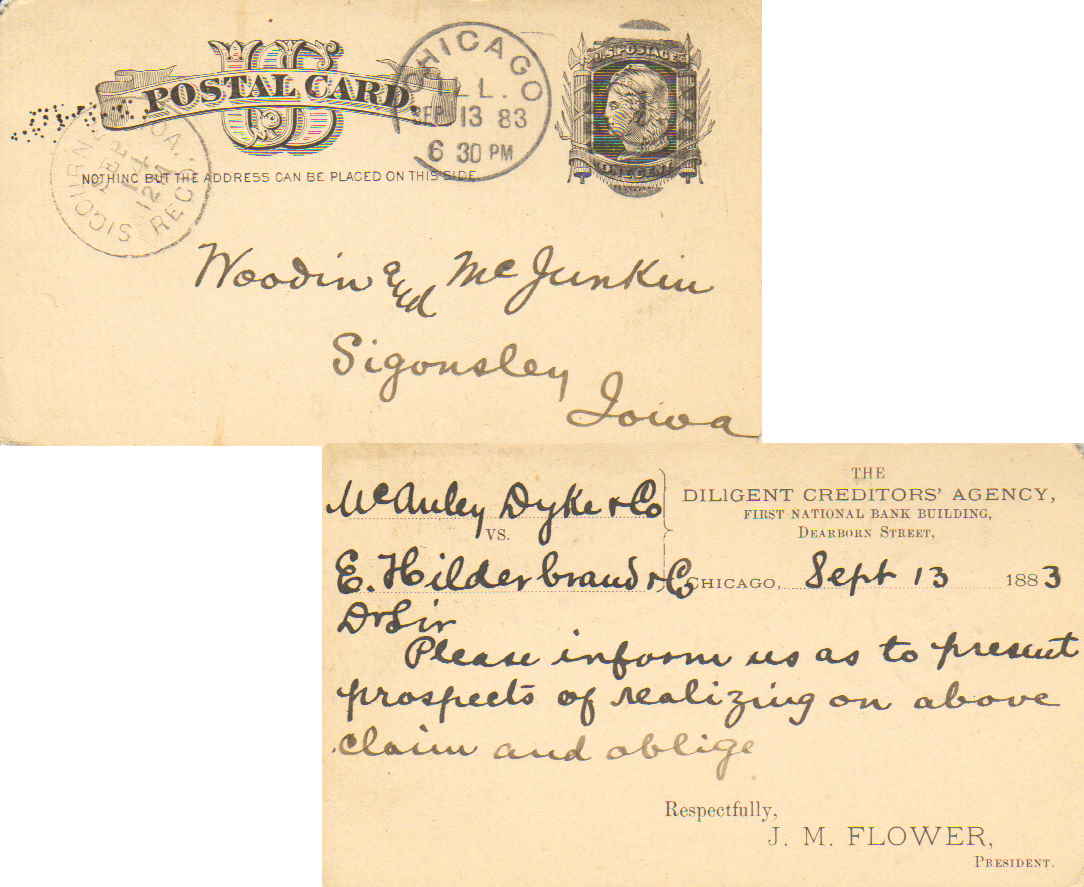 U S
POSTAL CARD.
NOTHING BUT THE ADDRESS CAN BE PLACED ON THIS SIDE
CHICAGO
ILL.
SEP 13 83
6 30 PM
U.S. POSTAGE
ONE CENT
SIGOURNEY IOA.
SEP
14
12 M
REC'D.
Woodin and McJunkin
Sigonsley
Iowa
McAuley Dyke & Co
VS.
E. Hilderbrand & Co
THE
DILIGENT CREDITORS' AGENCY,
FIRST NATIONAL BANK BUILDING,
DEARBORN STREET,
CHICAGO, Sept 13 1883
Dr Sir
Please inform us as to present
prospects of realizing on above
claim and oblige
Respectfully,
J. M. FLOWER,
PRESIDENT.